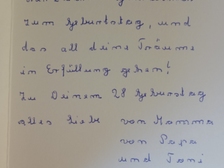 zum Geburtstag, und
das all deine Träume
in Erfüllung gehen!
Zu Deinem 28 Geburtstag
alles liebe von Mamma
von Papa
und Toni